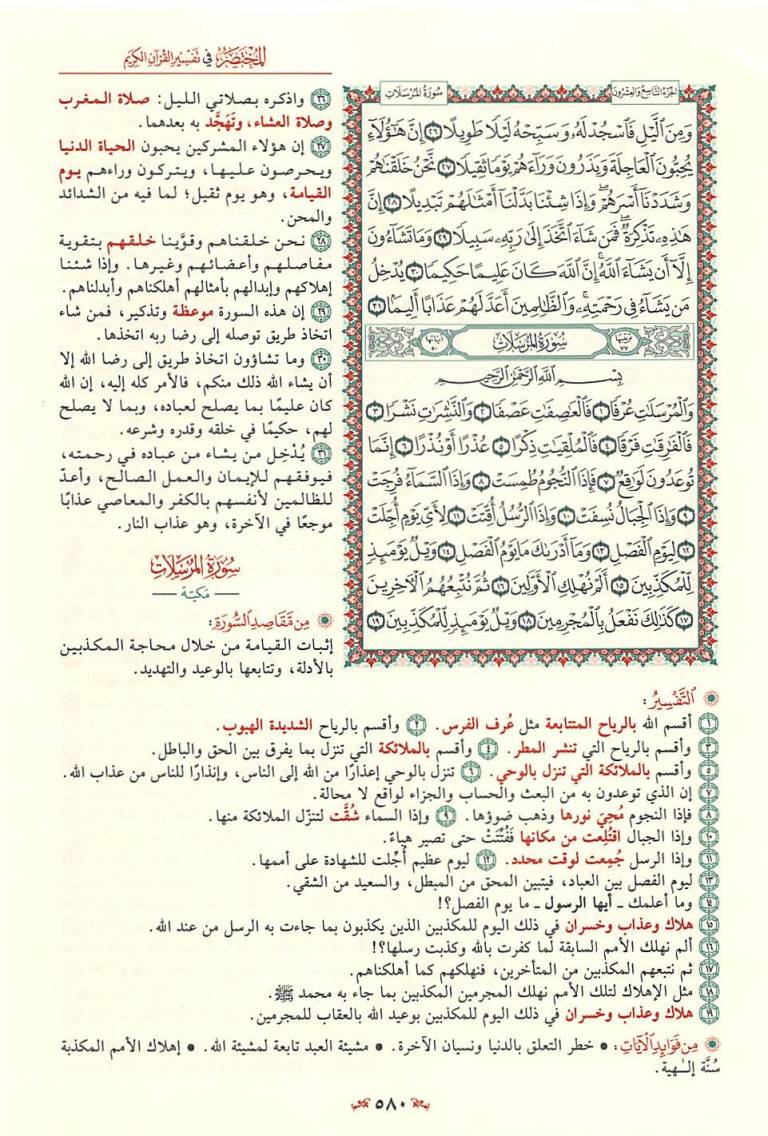 المختصر في تفسير القرآن الكريم
الجزء التاسع والعشرون
سورة المرسلات
وَمِنَ ٱلَّيۡلِ فَٱسۡجُدۡ لَهُۥ وَسَبِّحۡهُ لَيۡلٗا طَوِيلًا ٢٦ إِنَّ هَٰٓؤُلَآءِ
يُحِبُّونَ ٱلۡعَاجِلَةَ وَيَذَرُونَ وَرَآءَهُمۡ يَوۡمٗا ثَقِيلٗا ٢٧ نَّحۡنُ خَلَقۡنَٰهُمۡ
وَشَدَدۡنَآ أَسۡرَهُمۡۖ وَإِذَا شِئۡنَا بَدَّلۡنَآ أَمۡثَٰلَهُمۡ تَبۡدِيلًا ٢٨ إِنَّ
هَٰذِهِۦ تَذۡكِرَةٞۖ فَمَن شَآءَ ٱتَّخَذَ إِلَىٰ رَبِّهِۦ سَبِيلٗا ٢٩ وَمَا تَشَآءُونَ
إِلَّآ أَن يَشَآءَ ٱللَّهُۚ إِنَّ ٱللَّهَ كَانَ عَلِيمًا حَكِيمٗا ٣٠ يُدۡخِلُ
مَن يَشَآءُ فِي رَحۡمَتِهِۦۚ وَٱلظَّٰلِمِينَ أَعَدَّ لَهُمۡ عَذَابًا أَلِيمَۢا ٣١
ترتيبها ٧٧ سورة المرسلات آياتها ٥٠
بِسۡمِ ٱللَّهِ ٱلرَّحۡمَٰنِ ٱلرَّحِيمِ
وَٱلۡمُرۡسَلَٰتِ عُرۡفٗا ١ فَٱلۡعَٰصِفَٰتِ عَصۡفٗا ٢ وَٱلنَّٰشِرَٰتِ نَشۡرٗا ٣
فَٱلۡفَٰرِقَٰتِ فَرۡقٗا ٤ فَٱلۡمُلۡقِيَٰتِ ذِكۡرًا ٥ عُذۡرًا أَوۡ نُذۡرًا ٦ إِنَّمَا
تُوعَدُونَ لَوَٰقِعٞ ٧ فَإِذَا ٱلنُّجُومُ طُمِسَتۡ ٨ وَإِذَا ٱلسَّمَآءُ فُرِجَتۡ
٩ وَإِذَا ٱلۡجِبَالُ نُسِفَتۡ ١٠ وَإِذَا ٱلرُّسُلُ أُقِّتَتۡ ١١ لِأَيِّ يَوۡمٍ أُجِّلَتۡ
١٢ لِيَوۡمِ ٱلۡفَصۡلِ ١٣ وَمَآ أَدۡرَىٰكَ مَا يَوۡمُ ٱلۡفَصۡلِ ١٤ وَيۡلٞ يَوۡمَئِذٖ
لِّلۡمُكَذِّبِينَ ١٥ أَلَمۡ نُهۡلِكِ ٱلۡأَوَّلِينَ ١٦ ثُمَّ نُتۡبِعُهُمُ ٱلۡأٓخِرِينَ
١٧ كَذَٰلِكَ نَفۡعَلُ بِٱلۡمُجۡرِمِينَ ١٨ وَيۡلٞ يَوۡمَئِذٖ لِّلۡمُكَذِّبِينَ ١٩
٢٦ واذكره بصلاتي الليل: صلاة المغرب
وصلاة العشاء، وتَهَجَّد به بعدهما.
٢٧ إن هؤلاء المشركين يحبون الحياة الدنيا
ويحرصون عليها، ويتركون وراءهم يوم
القيامة، وهو يوم ثقيل؛ لما فيه من الشدائد
والمحن.
٢٨ نحن خلقناهم وقوَّينا خلقهم بتقوية
مفاصلهم وأعضائهم وغيرها. وإذا شئنا
إهلاكهم وإبدالهم بأمثالهم أهلكناهم وأبدلناهم.
٢٩ إن هذه السورة موعظة وتذكير، فمن شاء
اتخاذ طريق توصله إلى رضا ربه اتخذها.
٣٠ وما تشاؤون اتخاذ طريق إلى رضا الله إلا
أن يشاء الله ذلك منكم، فالأمر كله إليه، إن الله
كان عليمًا بما يصلح لعباده، وبما لا يصلح
لهم، حكيمًا في خلقه وقدره وشرعه.
٣١ يُدْخِل من يشاء من عباده في رحمته،
فيوفقهم للإيمان والعمل الصالح، وأعدّ
للظالمين لأنفسهم بالكفر والمعاصي عذابًا
موجعًا في الآخرة، وهو عذاب النار.
سورة المرسلات
— مكيّة —
من مقاصد السورة:
إثبات القيامة من خلال محاجة المكذبين
بالأدلة، وتتابعها بالوعيد والتهديد.
التفسير:
١ أقسم الله بالرياح المتتابعة مثل عُرف الفرس. ٢ وأقسم بالرياح الشديدة الهبوب.
٣ وأقسم بالرياح التي تنشر المطر. ٤ وأقسم بالملائكة التي تنزل بما يفرق بين الحق والباطل.
٥ وأقسم بالملائكة التي تنزل بالوحي. ٦ تنزل بالوحي إعذارًا من الله إلى الناس، وإنذارًا للناس من عذاب الله.
٧ إن الذي توعدون به من البعث والحساب والجزاء لواقع لا محالة.
٨ فإذا النجوم مُحِيَ نورها وذهب ضوؤها. ٩ وإذا السماء شُقَّت لتنزّل الملائكة منها.
١٠ وإذا الجبال اقتُلِعت من مكانها فَفُتِّتَتْ حتى تصير هباءً.
١١ وإذا الرسل جُمِعت لوقت محدد. ١٢ ليوم عظيم أُجِّلت للشهادة على أممها.
١٣ ليوم الفصل بين العباد، فيتبين المحق من المبطل، والسعيد من الشقي.
١٤ وما أعلمك ـ أيها الرسول ـ ما يوم الفصل؟!
١٥ هلاك وعذاب وخسران في ذلك اليوم للمكذبين الذين يكذبون بما جاءت به الرسل من عند الله.
١٦ ألم نهلك الأمم السابقة لما كفرت بالله وكذبت رسلها؟!
١٧ ثم نتبعهم المكذبين من المتأخرين، فنهلكهم كما أهلكناهم.
١٨ مثل الإهلاك لتلك الأمم نهلك المجرمين المكذبين بما جاء به محمد ﷺ.
١٩ هلاك وعذاب وخسران في ذلك اليوم للمكذبين بوعيد الله بالعقاب للمجرمين.
من فوائد الآيات: • خطر التعلق بالدنيا ونسيان الآخرة. • مشيئة العبد تابعة لمشيئة الله. • إهلاك الأمم المكذبة
سُنَّة إلـهية.
٥٨٠